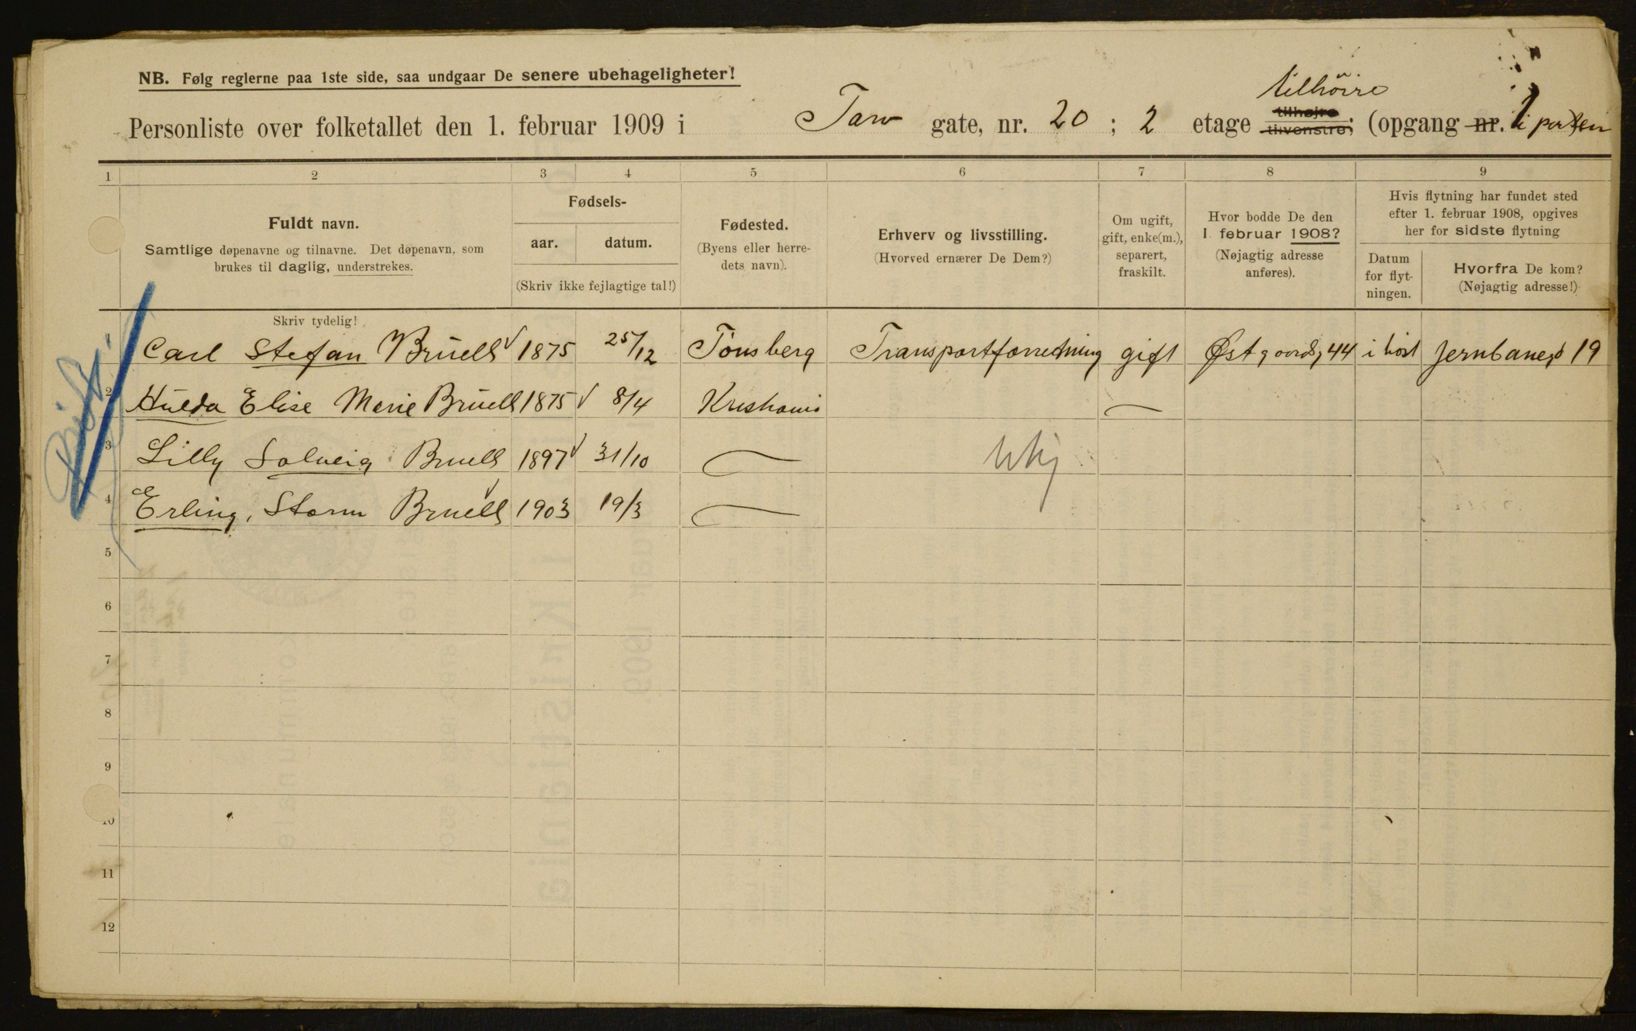 NB. Følg reglerne paa 1ste side, saa undgaar De senere ubehageligheter!
tilhöire
Personliste over folketallet den 1. februar 1909 i Torv gate, nr. 20 ; 2 etage tilhøjre tilvenstre; (opgang nr. 1 i porten
1 2 3 4 5 6 7 8 9
Fuldt navn.
Samtlige døpenavne og tilnavne. Det døpenavn, som
brukes til daglig, understrekes.
Fødsels-
aar. datum.
(Skriv ikke fejlagtige tal!)
Fødested.
(Byens eller herre-
dets navn).
Erhverv og livsstilling.
(Hvorved ernærer De Dem?)
Om ugift,
gift, enke(m.),
separert,
fraskilt.
Hvor bodde De den
1. februar 1908?
(Nøjagtig adresse
anføres).
Hvis flytning har fundet sted
efter 1. februar 1908, opgives
her for sidste flytning
Datum
for flyt-
ningen.
Hvorfra De kom?
(Nøjagtig adresse!)
Skriv tydelig!
1 Carl Stefan Bruell 1875 25/12 Tönsberg Transportforretning gift Østgaardsg 44 i höst Jernbanegd 19
2 Hulda Elise Marie Bruell 1875 8/4 Kristiania —
3 Lilly Solveig Bruell 1897 31/10 —
4 Erling, Storm Bruell 1903 19/3 —
5
6
7
8
9
10
11
12